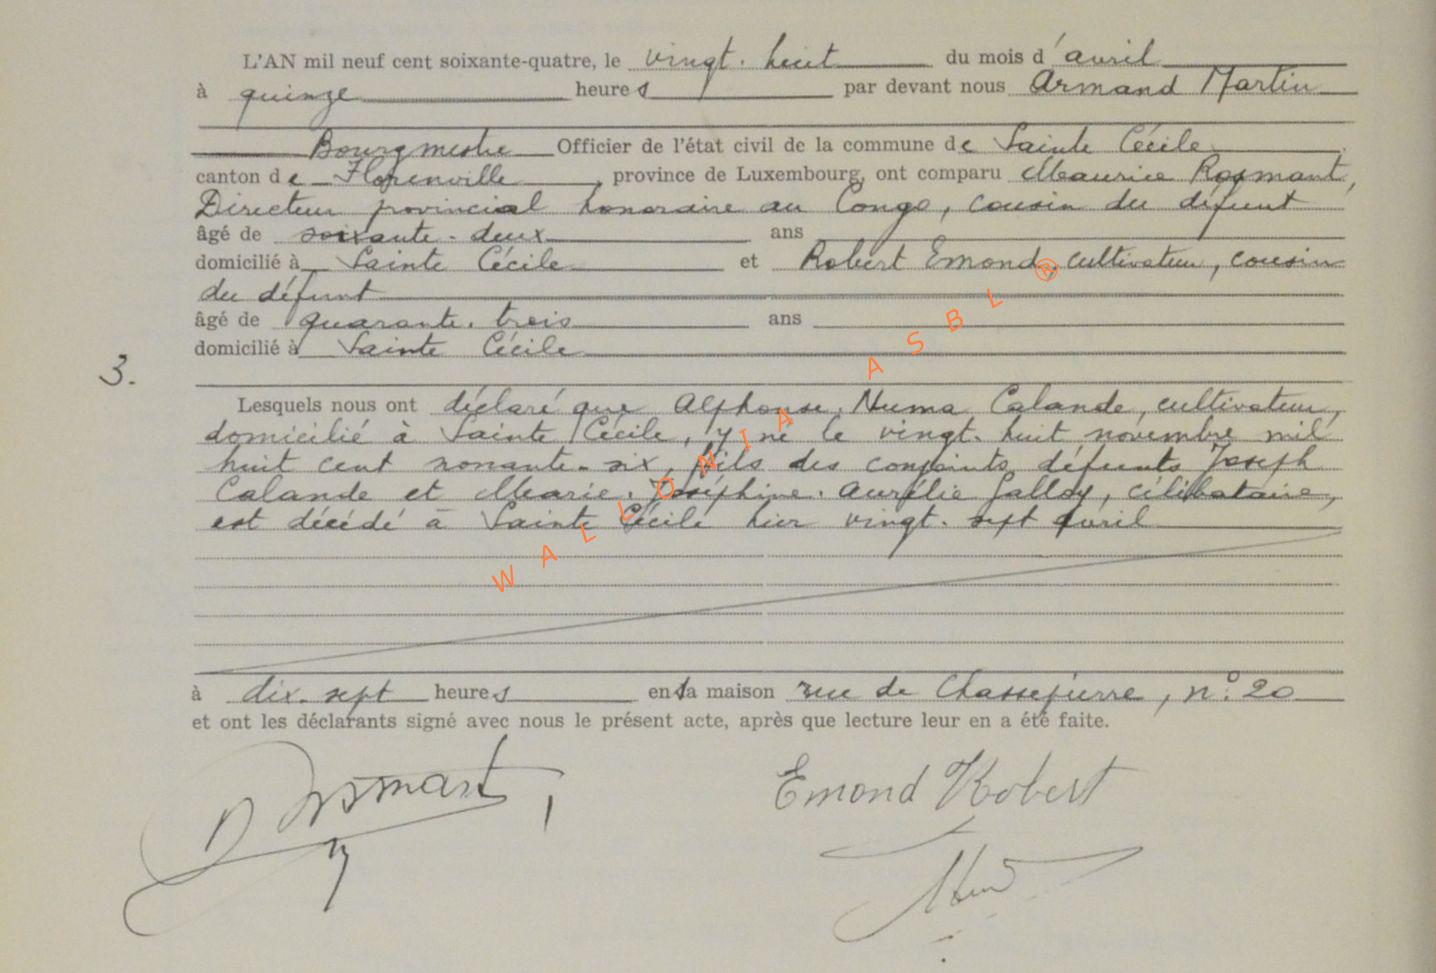 L'AN mil neuf cent soixante-quatre, le vingt-huit du mois d'avril
à quinze heures par devant nous Armand Martin
Bourgmestre Officier de l'état civil de la commune de Sainte Cécile
canton de Florenville, province de Luxembourg, ont comparu Maurice Rosmant,
Directeur provincial honoraire au Congo, cousin du défunt
âgé de soixante-deux ans
domicilié à Sainte Cécile et Robert Emond, cultivateur, cousin
du défunt
âgé de quarante-trois ans
domicilié à Sainte Cécile
3.
Lesquels nous ont déclaré que Alphonse, Numa Calande, cultivateur,
domicilié à Sainte Cécile, y né le vingt-huit novembre mil
huit cent nonante-six, fils des conjoints défunts Joseph
Calande et Marie-Joséphine-Aurélie Galloy, célibataire,
est décédé à Sainte Cécile hier vingt-sept avril
à dix-sept heures en sa maison rue de Chassepierre, n° 20
et ont les déclarants signé avec nous le présent acte, après que lecture leur en a été faite.
Rosmant
Emond Robert
WALLONIA ASBL ®